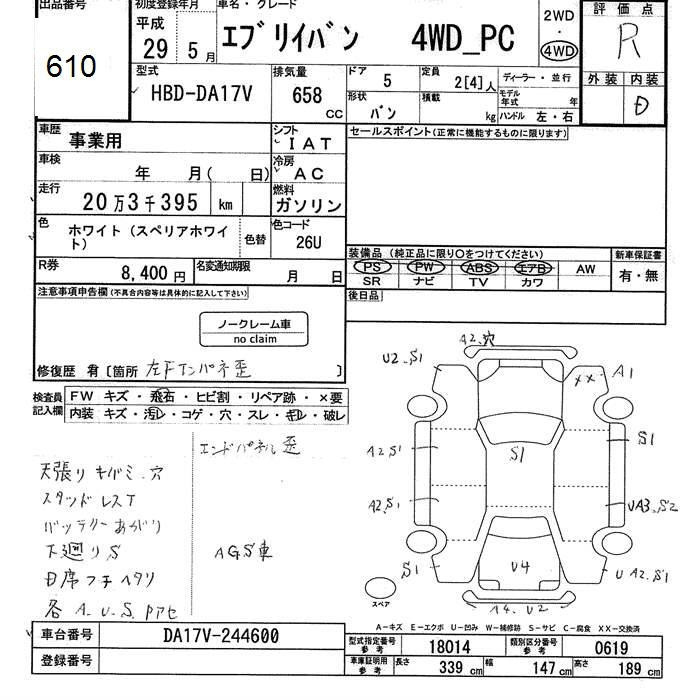 出品番号
610
初度登録年月
平成
29 5月
車名・グレード
エブリイバン 4WD_PC
2WD
・
4WD
評価点
R
外装 内装
D
型式
HBD-DA17V
排気量
658
CC
ドア 5
形状 バン
定員 2[4]人
積載 kg
ディーラー・並行
モデル年式 年
ハンドル 左・右
車歴 事業用
シフト IAT
車検 年 月( 日)
冷房 AC
走行 20万3千395 km
燃料 ガソリン
色 ホワイト(スペリアホワイト)
色替
色コード 26U
R券 8,400円
名変通知期限 月 日
セールスポイント(正常に機能するものに限ります)
装備品(純正品に限り○をつけてください)
PS PW ABS エアB AW
SR ナビ TV カワ
新車保証書
有・無
後日品
注意事項申告欄(不具合内容等は具体的に記入して下さい)
ノークレーム車
no claim
修復歴 有 [箇所 左Fインパネ歪 ]
検査員記入欄
FW キズ・飛石・ヒビ割・リペア跡・×要
内装 キズ・汚レ・コゲ・穴・スレ・キレ・破レ
エンドパネル歪
天張りキバミ.穴
スタッドレスT
バッテリーあがり
下廻りS
AGS車
各 A.U.S.
A2.穴
U2.S1
XX
A1
S1
A2.S1
S1
A2.S1
UA3.S2
S1
U4
U A2.S1
A4.U2
スペア
A-キズ E-エクボ U-凹み W-補修跡 S-サビ C-腐食 XX-交換済
車台番号 DA17V-244600
登録番号
型式指定番号 参考 18014
類別区分番号 参考 0619
車庫証明用 参考
長さ 339 cm
幅 147 cm
高さ 189 cm